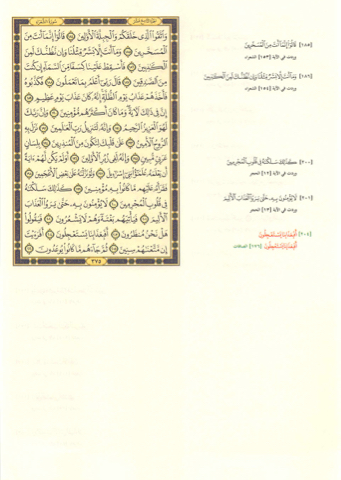 الجزء التاسع عشر
سورة الشعراء
وَاتَّقُوا الَّذِي خَلَقَكُمْ وَالْجِبِلَّةَ الْأَوَّلِينَ ١٨٤ قَالُوا إِنَّمَا أَنتَ مِنَ
الْمُسَحَّرِينَ ١٨٥ وَمَا أَنتَ إِلَّا بَشَرٌ مِّثْلُنَا وَإِن نَّظُنُّكَ لَمِنَ
الْكَاذِبِينَ ١٨٦ فَأَسْقِطْ عَلَيْنَا كِسَفًا مِّنَ السَّمَاءِ إِن كُنتَ
مِنَ الصَّادِقِينَ ١٨٧ قَالَ رَبِّي أَعْلَمُ بِمَا تَعْمَلُونَ ١٨٨ فَكَذَّبُوهُ
فَأَخَذَهُمْ عَذَابُ يَوْمِ الظُّلَّةِ إِنَّهُ كَانَ عَذَابَ يَوْمٍ عَظِيمٍ ١٨٩
إِنَّ فِي ذَٰلِكَ لَآيَةً وَمَا كَانَ أَكْثَرُهُم مُّؤْمِنِينَ ١٩٠ وَإِنَّ رَبَّكَ
لَهُوَ الْعَزِيزُ الرَّحِيمُ ١٩١ وَإِنَّهُ لَتَنزِيلُ رَبِّ الْعَالَمِينَ ١٩٢ نَزَلَ بِهِ
الرُّوحُ الْأَمِينُ ١٩٣ عَلَىٰ قَلْبِكَ لِتَكُونَ مِنَ الْمُنذِرِينَ ١٩٤ بِلِسَانٍ
عَرَبِيٍّ مُّبِينٍ ١٩٥ وَإِنَّهُ لَفِي زُبُرِ الْأَوَّلِينَ ١٩٦ أَوَلَمْ يَكُن لَّهُمْ آيَةً
أَن يَعْلَمَهُ عُلَمَاءُ بَنِي إِسْرَائِيلَ ١٩٧ وَلَوْ نَزَّلْنَاهُ عَلَىٰ بَعْضِ الْأَعْجَمِينَ ١٩٨
فَقَرَأَهُ عَلَيْهِم مَّا كَانُوا بِهِ مُؤْمِنِينَ ١٩٩ كَذَٰلِكَ سَلَكْنَاهُ
فِي قُلُوبِ الْمُجْرِمِينَ ٢٠٠ لَا يُؤْمِنُونَ بِهِ حَتَّىٰ يَرَوُا الْعَذَابَ
الْأَلِيمَ ٢٠١ فَيَأْتِيَهُم بَغْتَةً وَهُمْ لَا يَشْعُرُونَ ٢٠٢ فَيَقُولُوا
هَلْ نَحْنُ مُنظَرُونَ ٢٠٣ أَفَبِعَذَابِنَا يَسْتَعْجِلُونَ ٢٠٤ أَفَرَأَيْتَ
إِن مَّتَّعْنَاهُمْ سِنِينَ ٢٠٥ ثُمَّ جَاءَهُم مَّا كَانُوا يُوعَدُونَ ٢٠٦
٣٧٥
(١٨٥) قَالُوا إِنَّمَا أَنتَ مِنَ الْمُسَحَّرِينَ
وردت في الآية [١٥٣] الشعراء
(١٨٦) وَمَا أَنتَ إِلَّا بَشَرٌ مِّثْلُنَا وَإِن نَّظُنُّكَ لَمِنَ الْكَاذِبِينَ
وردت في الآية [١٥٤] الشعراء
(٢٠٠) كَذَٰلِكَ سَلَكْنَاهُ فِي قُلُوبِ الْمُجْرِمِينَ
وردت في الآية [١٢] الحجر
(٢٠١) لَا يُؤْمِنُونَ بِهِ حَتَّىٰ يَرَوُا الْعَذَابَ الْأَلِيمَ
وردت في الآية [١٣] الحجر
(٢٠٤) أَفَبِعَذَابِنَا يَسْتَعْجِلُونَ
أَفَبِعَذَابِنَا يَسْتَعْجِلُونَ [١٧٦] الصافات